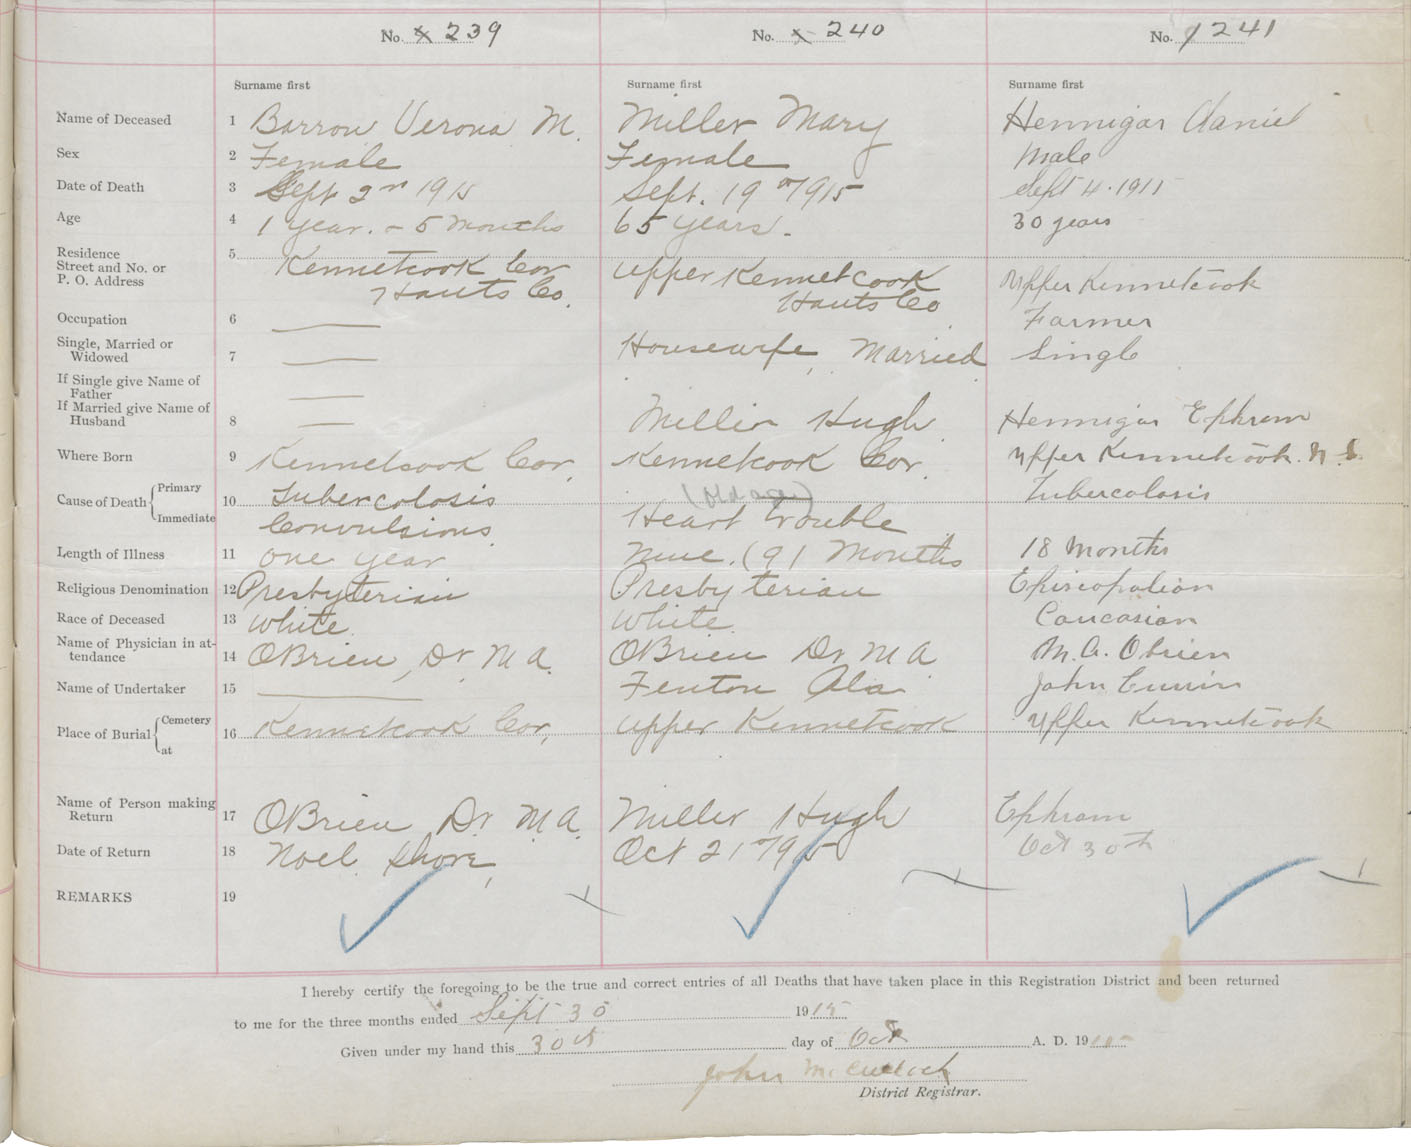 No. 239 No. 240 No. 241
Surname first Surname first Surname first
Name of Deceased 1 Barron Verona M. Miller Mary Hennigar Daniel
Sex 2 Female Female Male
Date of Death 3 Sept 2nd 1915 Sept. 19th 1915 Sept 4. 1915
Age 4 1 year. - 5 months 65 years. 30 years
Residence 5
Street and No. or Kennetcook Cor Upper Kennetcook Upper Kennetcook
P. O. Address Hants Co. Hants Co
Occupation 6 Farmer
Single, Married or
Widowed 7 Housewife, Married Single
If Single give Name of
Father
If Married give Name of
Husband 8 Miller Hugh Hennigar Ephram
Where Born 9 Kennetcook Cor. Kennetcook Cor. Upper Kennetcook. N. S.
Cause of Death Primary 10 Tubercolosis (Old age) Tubercolosis
Immediate Convulsions Heart trouble
Length of Illness 11 one year Nine. (9) Months 18 Months
Religious Denomination 12 Presbyterian Presbyterian Episcopalian
Race of Deceased 13 White White Caucasian
Name of Physician in at-
tendance 14 OBrien, Dr M A. OBrien Dr M A M. A. Obrien
Name of Undertaker 15 Fenton John
Place of Burial Cemetery
at 16 Kennetcook Cor, Upper Kennetcook Upper Kennetcook
Name of Person making
Return 17 OBrien Dr M. A. Miller Hugh Ephram
Date of Return 18 Noel Shore, Oct 21st 1915 Oct 30th
REMARKS 19
I hereby certify the foregoing to be the true and correct entries of all Deaths that have taken place in this Registration District and been returned
to me for the three months ended Sept 30 1915
Given under my hand this 30th day of Oct A. D. 1915
John McCulloch
District Registrar.